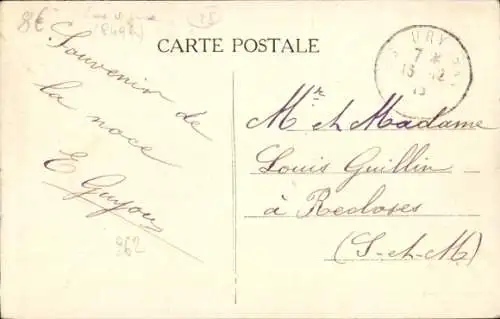 8€
CARTE POSTALE
URY
7 *
13 12
13
Souvenir de
la noce
E Guyou
962
Mr et Madame
Louis Guillin
à Recloses
(S-et-M)